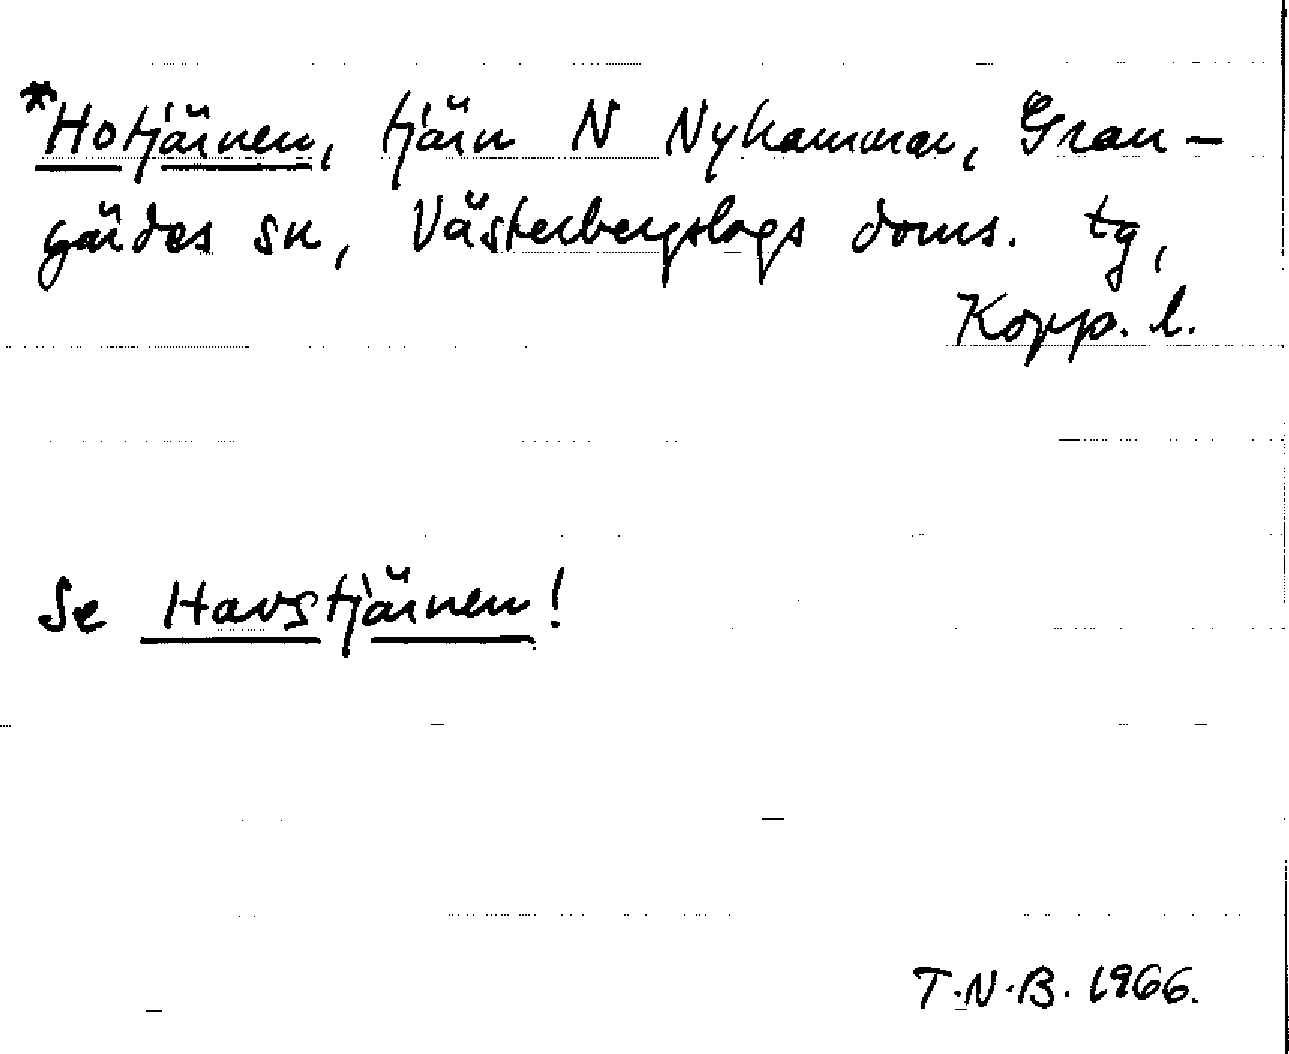 *Hotjärnen, tjärn N Nyhammar, Gran-
gärdes sn, Västerbergslags doms. tg,
Kopp. l.
Se Havstjärnen!
T.N.B. 1966.